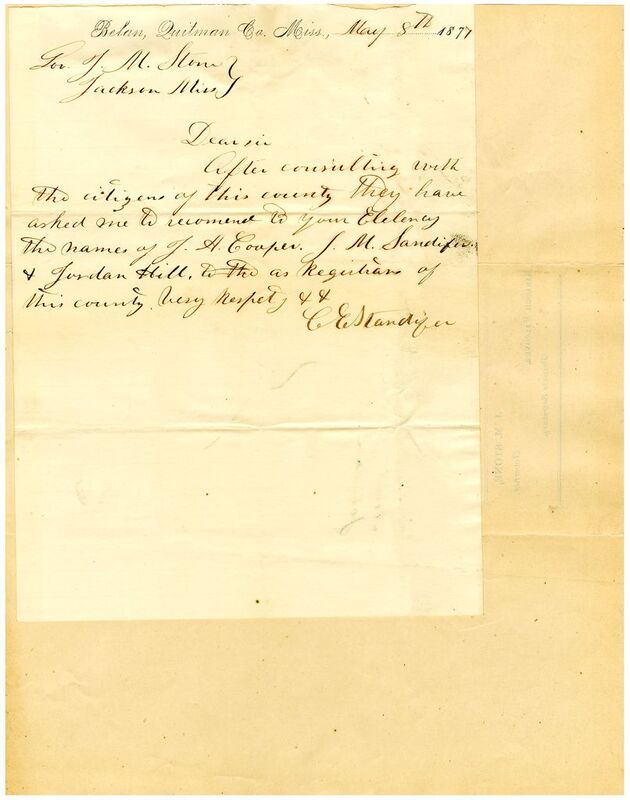 Belan, Quitman Co. Miss., May 8th 1877
Gov. J. M. Stone
Jackson Miss
Dear sir
After consulting with
the citizens of this county they have
asked me to recomend to your Exelency
the names of J. H. Cooper. J. M. Sandifer.
& Jordan Hill, to the as Registrars of
this county. Very Respet &&
C E Standifer
J. M. STONE,